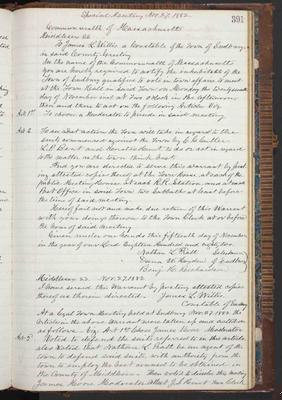 Special Meeting Nov. 27. 1882.
391
Commonwealth of Massachusetts
Middlesex SS.
To James L. Willis a Constable of the Town of Sudbury
in said County Greeting
In the name of the Commonwealth of Massachusetts
you are hereby required to notify the inhabitants of the
Town of Sudbury qualified to vote in town affairs to meet
at the Town Hall in said Town on Monday the
day of November inst at two o'clock in the afternoon
then and there to act on the following Articles Viz
Art 1st To choose a Moderator to preside in said meeting.
Art. 2 To see what action the Town will take in regard to the
suits commenced against the Town by
L. P. Bent and to do or act in regard
to the matter as the town think best.
And you are directed to serve this warrant by post-
ing attested copies thereof at the Town House at each of the
public Meeting Houses at each R.R. Station and at each
Post Office in said Town two Sabbaths at least before
the time of said meeting
Hereof fail not and make due return of this Warrant
with your doings thereon to the Town Clerk at or before
the hour of said meeting
Given under our hands this fifteenth day of November
in the year of our Lord Eighteen Hundred and eighty two.
Nathan L. Pratt Selectmen
of Sudbury
Benj. H. Richardson
Middlesex SS. Nov. 27, 1882
I have served this Warrant by posting attested copies
thereof as therein directed. James L. Willis
Constable of Sudbury
At a legal Town Meeting held at Sudbury Nov. 27. 1882 the
Articles in the above warrant were taken up and acted on
as follows. Viz Art 1st Chose James Moore Moderator
Art. 2d Voted to defend the suits referred to in this article
also Voted that Nathan L. Pratt be an agent of the
town to defend said suits with authority from the
town to employ the best counsel to be obtained in
the County of Middlesex. Then voted to dissolve the meeting
James Moore Moderator Attest J. S. Hunt Town Clerk